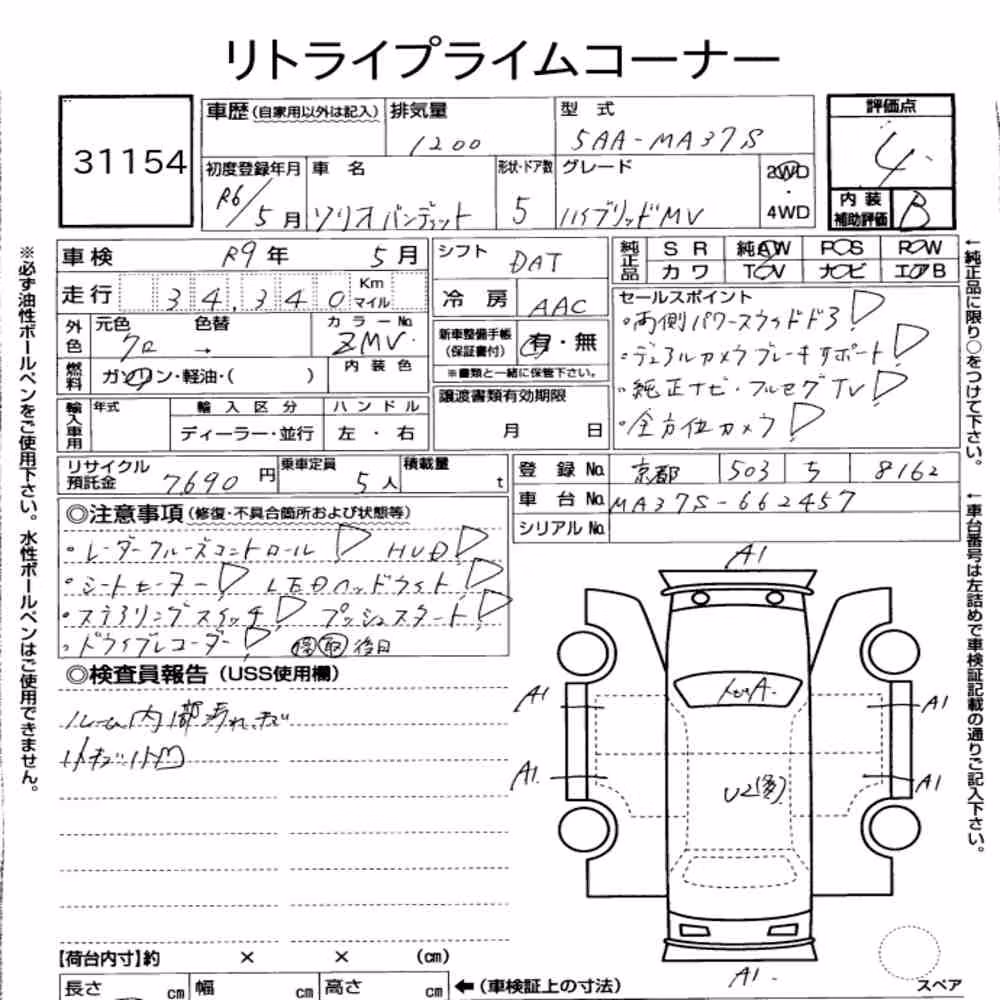 リトライプライムコーナー
31154
車歴(自家用以外は記入)
排気量
1200
型 式
5AA-MA37S
評価点
4
初度登録年月
R6/5月
車 名
ソリオバンディット
形状・ドア数
5
グレード
ハイブリッドMV
2WD
・
4WD
内 装
補助評価
B
車検 R9年 5月
シフト DAT
純正品
SR 純AW P・S P・W
カワ TV ナビ エアB
走行 34,340 Km マイル
冷 房 AAC
セールスポイント
・両側パワースライドドア
・デュアルカメラブレーキサポート
・純正ナビ・フルセグTV
・全方位カメラ
外色
元色 クロ →
色替
カラーNo. ZMV
新車整備手帳
(保証書付)
有・無
※書類と一緒に保管下さい。
燃料
ガソリン・軽油・( )
内 装 色
譲渡書類有効期限
月 日
輸入車用
年式
輸 入 区 分
ディーラー・並行
ハ ン ド ル
左 ・ 右
リサイクル
預託金
7,690円
乗車定員
5人
積載量
t
登 録 No. 京都 503 ち 8162
車 台 No. MA37S-662457
シリアル No.
◎注意事項(修復・不具合箇所および状態等)
・レーダークルーズコントロール HUD
・シートヒーター LEDヘッドライト
・ステアリングスイッチ プッシュスタート
・ドライブレコーダー 保 取 後日
◎検査員報告(USS使用欄)
ルーム内部汚れ、キズ
A1
A1
A1
A1
A1
U2(多)
A1
【荷台内寸】約 × × (cm)
長さ cm 幅 cm 高さ cm
←(車検証上の寸法)
スペア
※必ず油性ボールペンをご使用下さい。水性ボールペンはご使用できません。
←純正品に限り○をつけて下さい。
←車台番号は左詰めで車検証記載の通りご記入下さい。